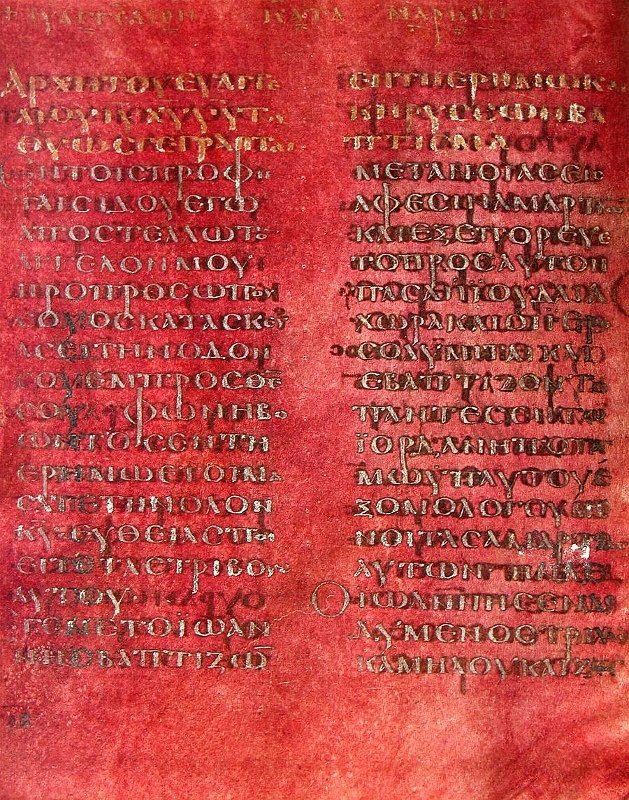 + ΕΥΑΓΓΕΛΙΟΝ ΚΑΤΑ ΜΑΡΚΟΝ
ΑΡΧΗΤΟΥΕΥΑΓΓΕ
ΛΙΟΥΙΥΧΥΥΥΤΟΥ
ΘΥΩϹΓΕΓΡΑΠΤΑΙ
ΕΝΤΟΙϹΠΡΟΦΗ
ΤΑΙϹΙΔΟΥΕΓΩ
ΑΠΟϹΤΕΛΛΩΤΟ
ΑΓΓΕΛΟΝΜΟΥ
ΠΡΟΠΡΟϹΩΠΟΥ
ϹΟΥΟϹΚΑΤΑϹΚΕΥ
ΑϹΕΙΤΗΝΟΔΟΝ
ϹΟΥΕΜΠΡΟϹΘΕ
ϹΟΥΦΩΝΗΒΟ
ΩΝΤΟϹΕΝΤΗ
ΕΡΗΜΩΕΤΟΙΜΑ
ϹΑΤΕΤΗΝΟΔΟΝ
ΚΥΕΥΘΕΙΑϹΠΟΙ
ΕΙΤΕΤΑϹΤΡΙΒΟΥϹ
ΑΥΤΟΥ
ΕΓΕΝΕΤΟΙΩΑΝ
ΝΗϹΒΑΠΤΙΖΩ̅
ΕΝΤΗΕΡΗΜΩΚΑΙ
ΚΗΡΥϹϹΩΝΒΑ
ΠΤΙϹΜΑ
ΜΕΤΑΝΟΙΑϹΕΙϹ
ΑΦΕϹΙΝΑΜΑΡΤΙΩ
ΚΑΙΕΞΕΠΟΡΕΥΕ
ΤΟΠΡΟϹΑΥΤΟΝ
ΠΑϹΑΗΙΟΥΔΑΙΑ
ΧΩΡΑΚΑΙΟΙΙΕΡΟ
ϹΟΛΥΜΙΤΑΙΚΑΙ
ΕΒΑΠΤΙΖΟΝΤΟ
ΠΑΝΤΕϹΕΝΤΩ
ΪΟΡΔΑΝΗΠΟΤΑ
ΜΩΥΠΑΥΤΟΥΕ
ΞΟΜΟΛΟΓΟΥΜΕ
ΝΟΙΤΑϹΑΜΑΡΤΙΑϹ
ΑΥΤΩΝΗΝΔΕ
ΟΙΩΑΝΝΗϹΕΝΔΕ
ΔΥΜΕΝΟϹΤΡΙΧΑϹ
ΚΑΜΗΛΟΥΚΑΙΖΩ